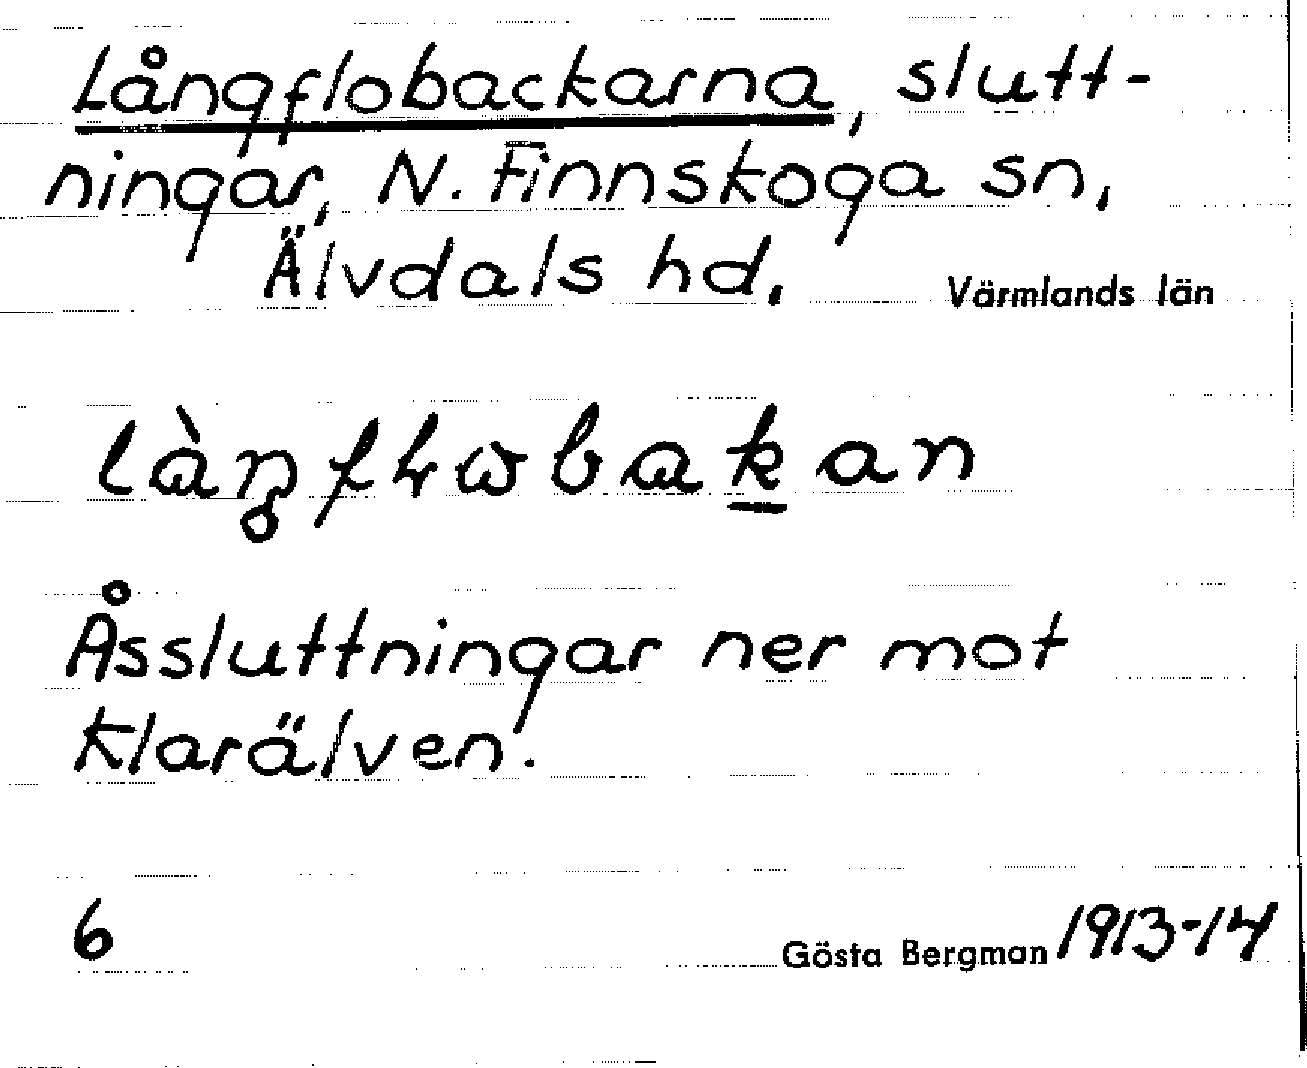 Långflobackarna, slutt-
ningar, N. Finnskoga sn,
Älvdals hd, Värmlands län
Åssluttningar ner mot
Klarälven.
6 Gösta Bergman 1913-14